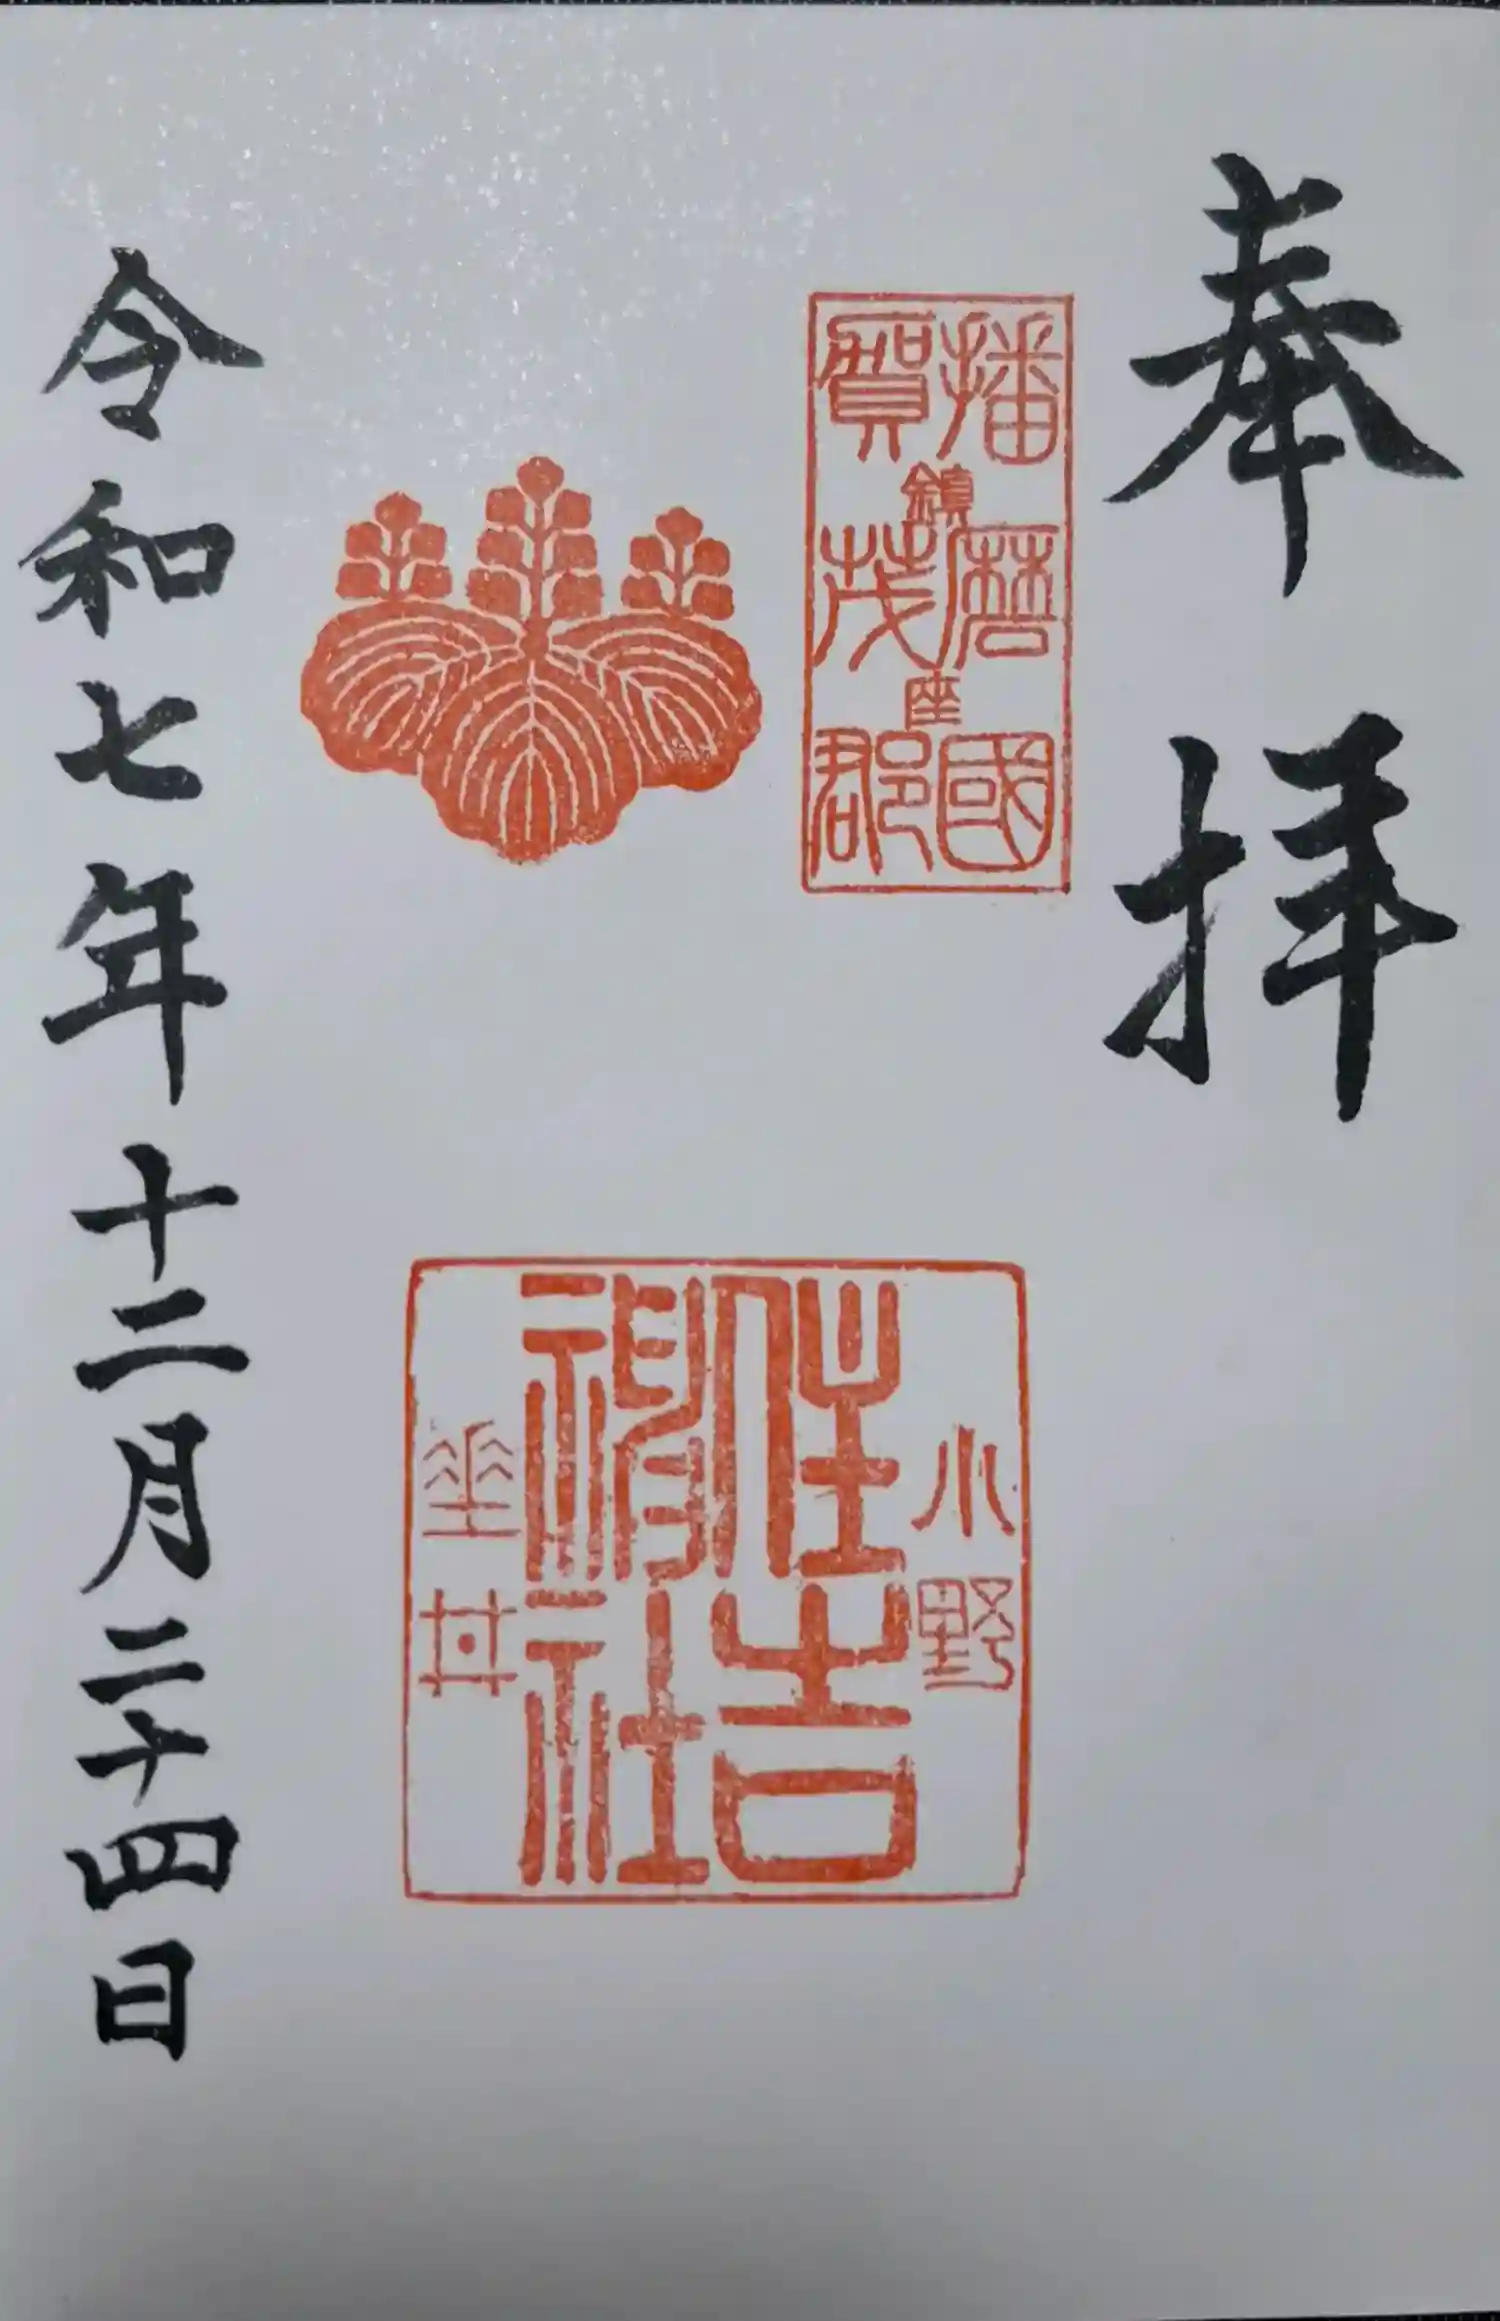 奉拝
播磨國
賀茂郡
鎮座
小野
住吉
神社
垂井
令和七年十二月二十四日